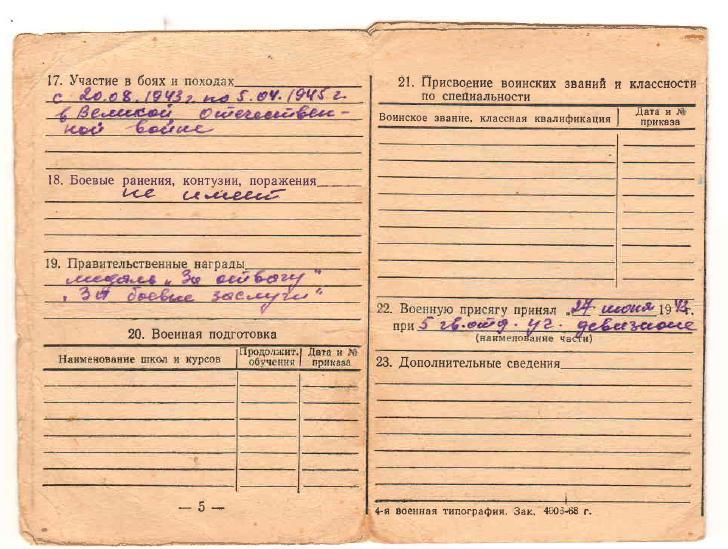 17. Участие в боях и походах
с 20.08.1943г. по 5.04.1945г.
в Великой отечествен-
ной войне
18. Боевые ранения, контузии, поражения
не имеет
19. Правительственные награды
медаль „За отвагу"
„За боевые заслуги"
20. Военная подготовка
Наименование школ и курсов
Продолжит. обучения
Дата и № приказа
— 5 —
21. Присвоение воинских званий и классности
по специальности
Воинское звание, классная квалификация
Дата и № приказа
22. Военную присягу принял „27 июня 1943г.
при 5 гв. отд. уч. девизионе
(наименование части)
23. Дополнительные сведения
4-я военная типография. Зак. 4006-68 г.